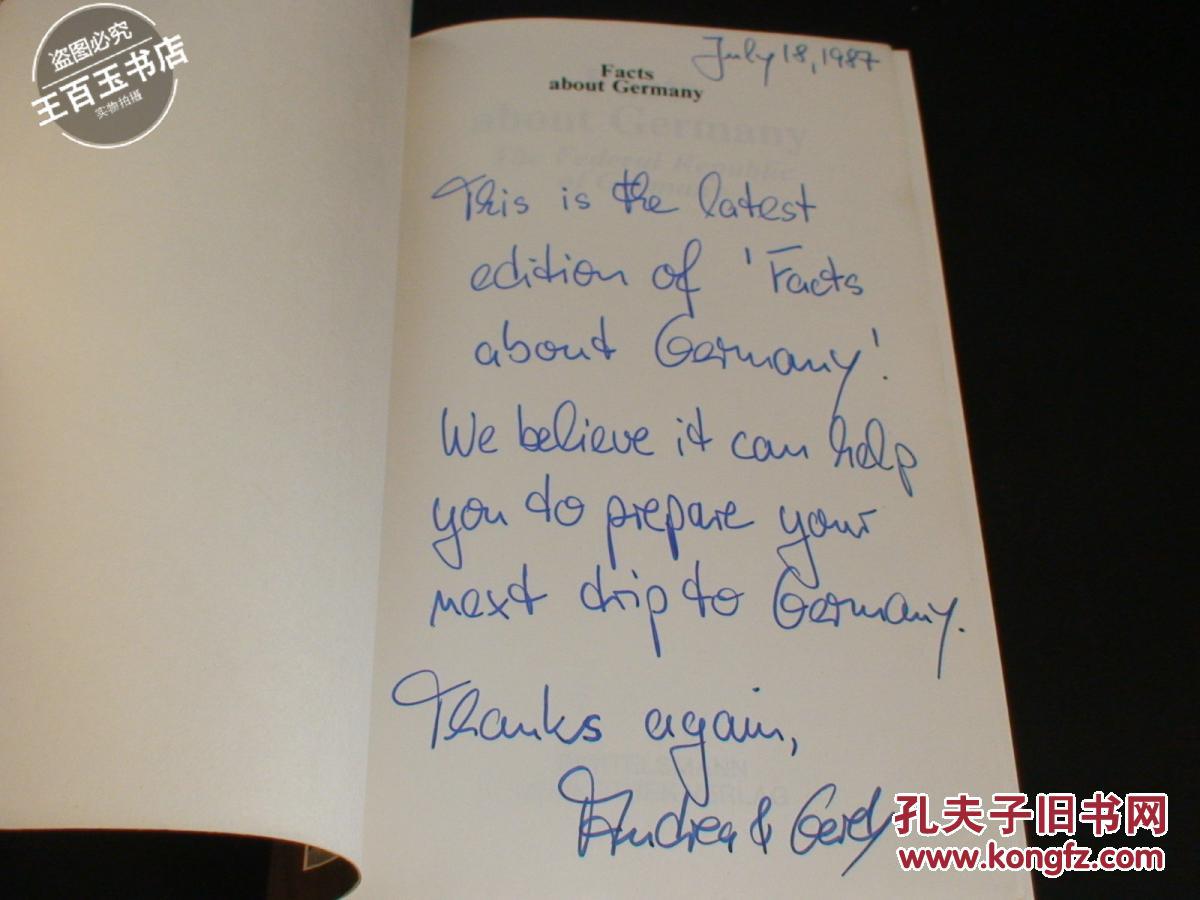 盗图必究
王百玉书店
实物拍摄
July 18, 1987
Facts
about Germany
about Germany
The Federal Republic
of Germany
This is the latest
edition of 'Facts
about Germany'.
We believe it can help
you to prepare your
next trip to Germany.
Thanks again,
Andrea & Gerd
孔夫子旧书网
www.kongfz.com